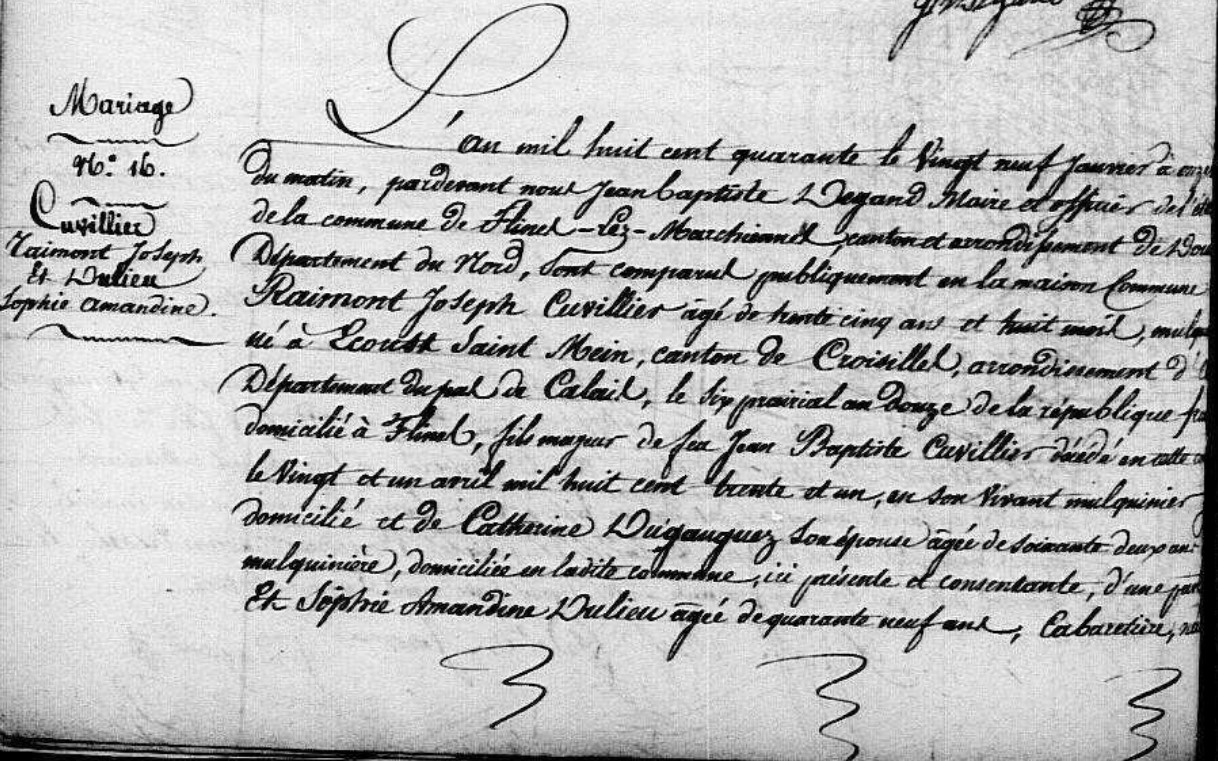 Mariage
N.° 16.
Cuvillier
Raimont Joseph
Et Dulieu
Sophie amandine.
L'an mil huit cent quarante le Vingt neuf Janvier à onze
du matin, pardevant nous Jean baptiste Degand Maire et officier de l'
de la commune de Flines-Lez-Marchiennes, canton et arrondissement de Dou
Département du Nord, sont comparus publiquement en la maison Commune
Raimont Joseph Cuvillier âgé de trente cinq ans et huit mois, mulq
né à Ecoust Saint Mein, canton de Croisilles, arrondissement d'
Département du pas de Calais, le six prairial an Douze de la république
domicilié à Flines, fils majeur de feu Jean Baptiste Cuvillier décédé en cette
le Vingt et un avril mil huit cent trente et un, en son vivant mulquinier
domicilié et de Catherine Dugauquez son épouse âgée de soixante deux ans
mulquinière, domiciliée en ladite commune, ici présente et consentante, d'une par
Et Sophie Amandine Dulieu âgée de quarante neuf ans, Cabaretière, né